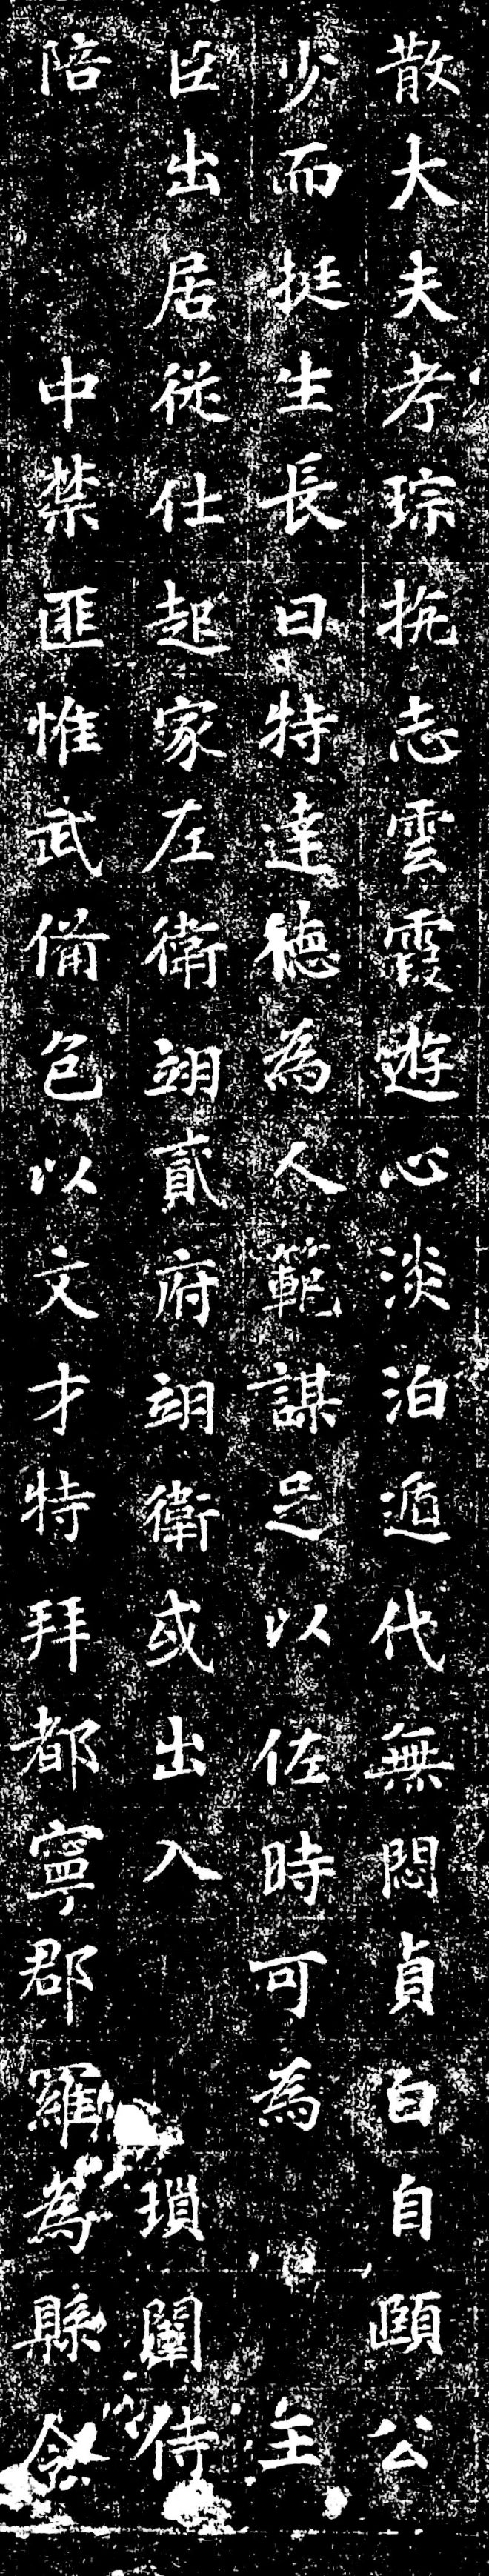 散大夫考琮執志雲霞遊心淡泊遁代無悶貞白自頤公
少而挺生長曰特達德為人範謀足以佐時可為主
臣出居從仕起家左衛翊貳府翊衛或出入瑣闈侍
陪中禁匪惟武備包以文才特拜都寧郡羅為縣令